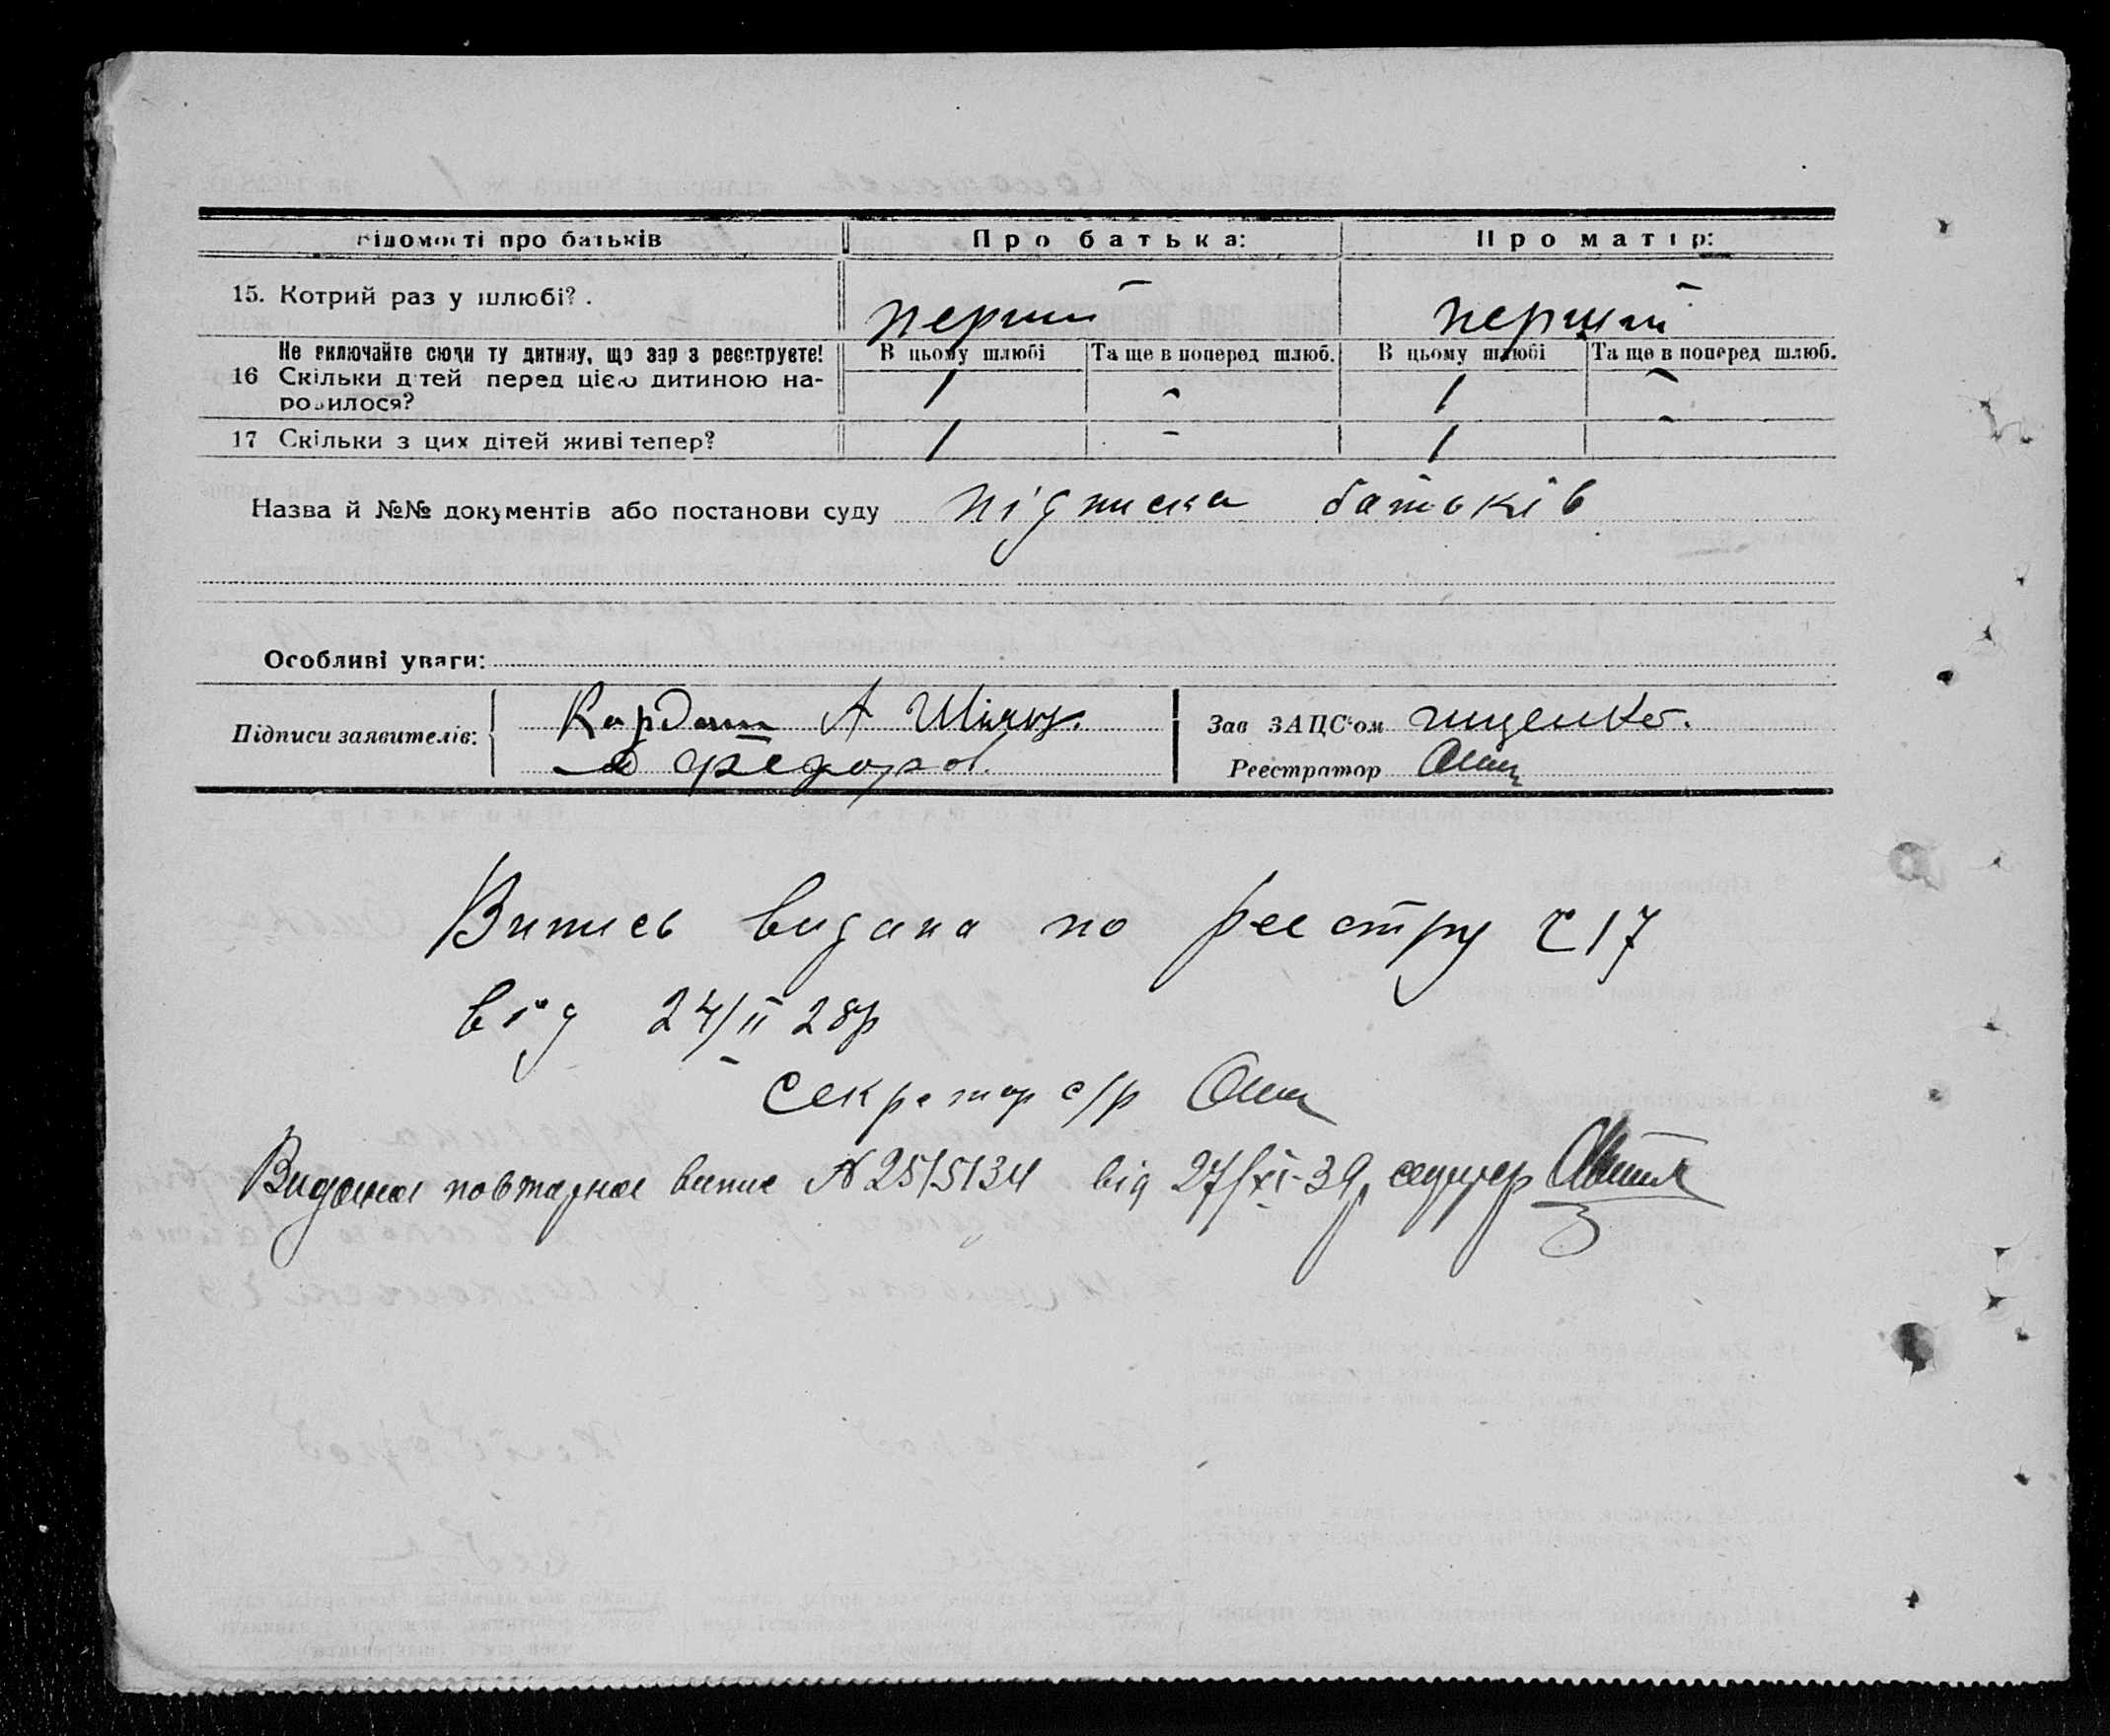 Відомості про батьків Про батька: Про матір:
15. Котрий раз у шлюбі? . перший перший
Не включайте сюди ту дитину, що зар з реєструєте! В цьому шлюбі Та ще в поперед шлюб. В цьому шлюбі Та ще в поперед шлюб.
16 Скільки дітей перед цією дитиною на- 1 - 1 -
родилося?
17 Скільки з цих дітей живі тепер? 1 - 1 -
Назва й №№ документів або постанови суду підписка батьків
Особливі уваги:
Підписи заявителів: Кардаш А Зав ЗАЦС'ом
Федоров. Реєстратор
Випись видана по реєстру Č 17
від 24/II 28р
Секретар с/р
Видана повторна випис № 25/5134 від 27/XI-39р